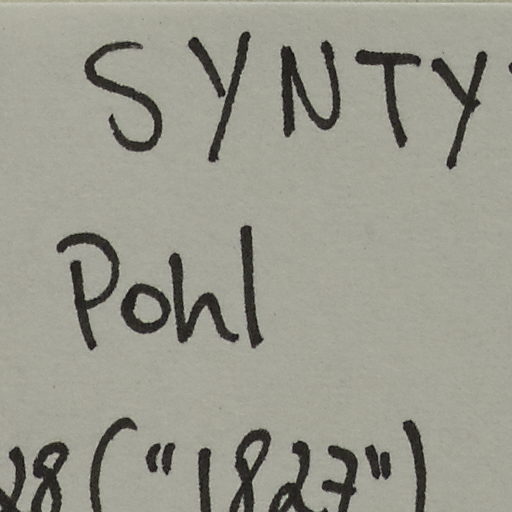 SYNTY
Pohl
28 ("1827")